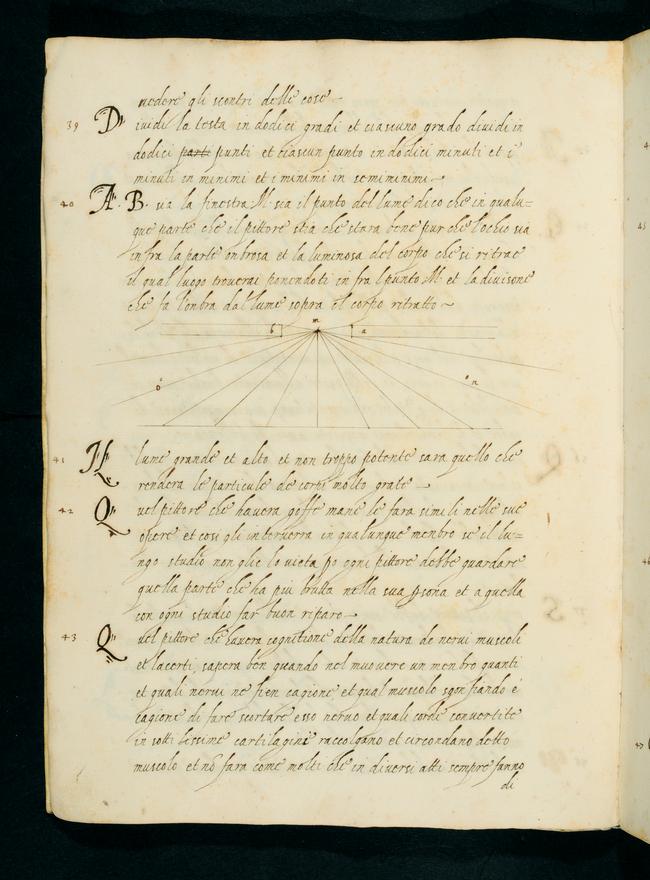 uedere gli scontri delle cose
39 Diuidi la testa in dodici gradi et ciascuno grado diuidi in
dodici parti punti et ciascun punto in dodici minuti et i
minuti in minimi et i minimi in semiminimi
40 A. B. sia la finestra M. sia il punto del lume dico che in qualu=
que parte che il pittore stia che stara bene pur che l'ochio sia
in fra la parte onbrosa et la luminosa del corpo che si ritrae
il qual luogo trouerai ponendoti in fra l punto M et la diuisone
che fa l'onbra dal lume sopra il corpo ritratto
m
b a
o n
41 Il lume grande et alto et non troppo potente sara quello che
rendera le particule de corpi molto grate
42 Quel pittore che hauera goffe mane le fara simili nelle sue
opere et cosi gli interuerra in qualunque menbro se il lu=
ngo studio non glie lo uieta po ogni pittore debbe guardare
quella parte che ha piu brutta nella sua psona et a quella
con ogni studio far buon riparo
43 Quel pittore che hauera cognitione della natura de nerui muscoli
et lacerti, sapera ben quando nel muouere un menbro quanti
et quali nerui ne sien cagione et qual muscolo sgonfiando è
cagione di fare scortare esso neruo et quali corde conuertite
in sottilissime cartilagini raccolgano et circondano detto
muscolo et nō fara come molti che in diuersi atti sempre fanno
di